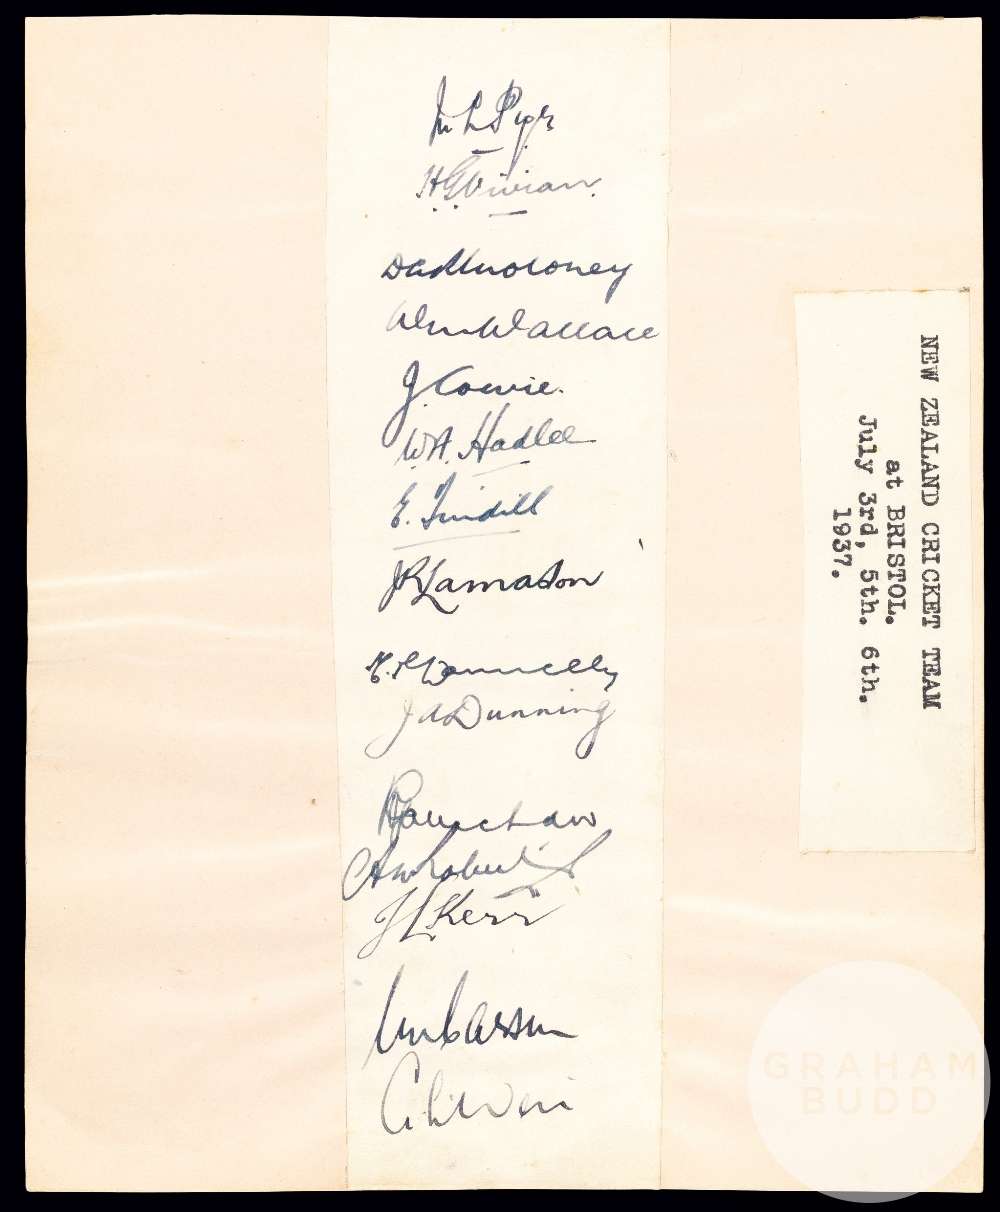 M L Page
H G Vivian.
D A R Moloney
W M Wallace
J. Cowie.
W. A. Hadlee
E. Tindill
J R Lamason
M. P. Donnelly
J A Dunning
A W Roberts
J L Kerr
W N Carson
G L Weir
NEW ZEALAND CRICKET TEAM
at BRISTOL.
July 3rd, 5th. 6th.
1937.
GRAHAM
BUDD